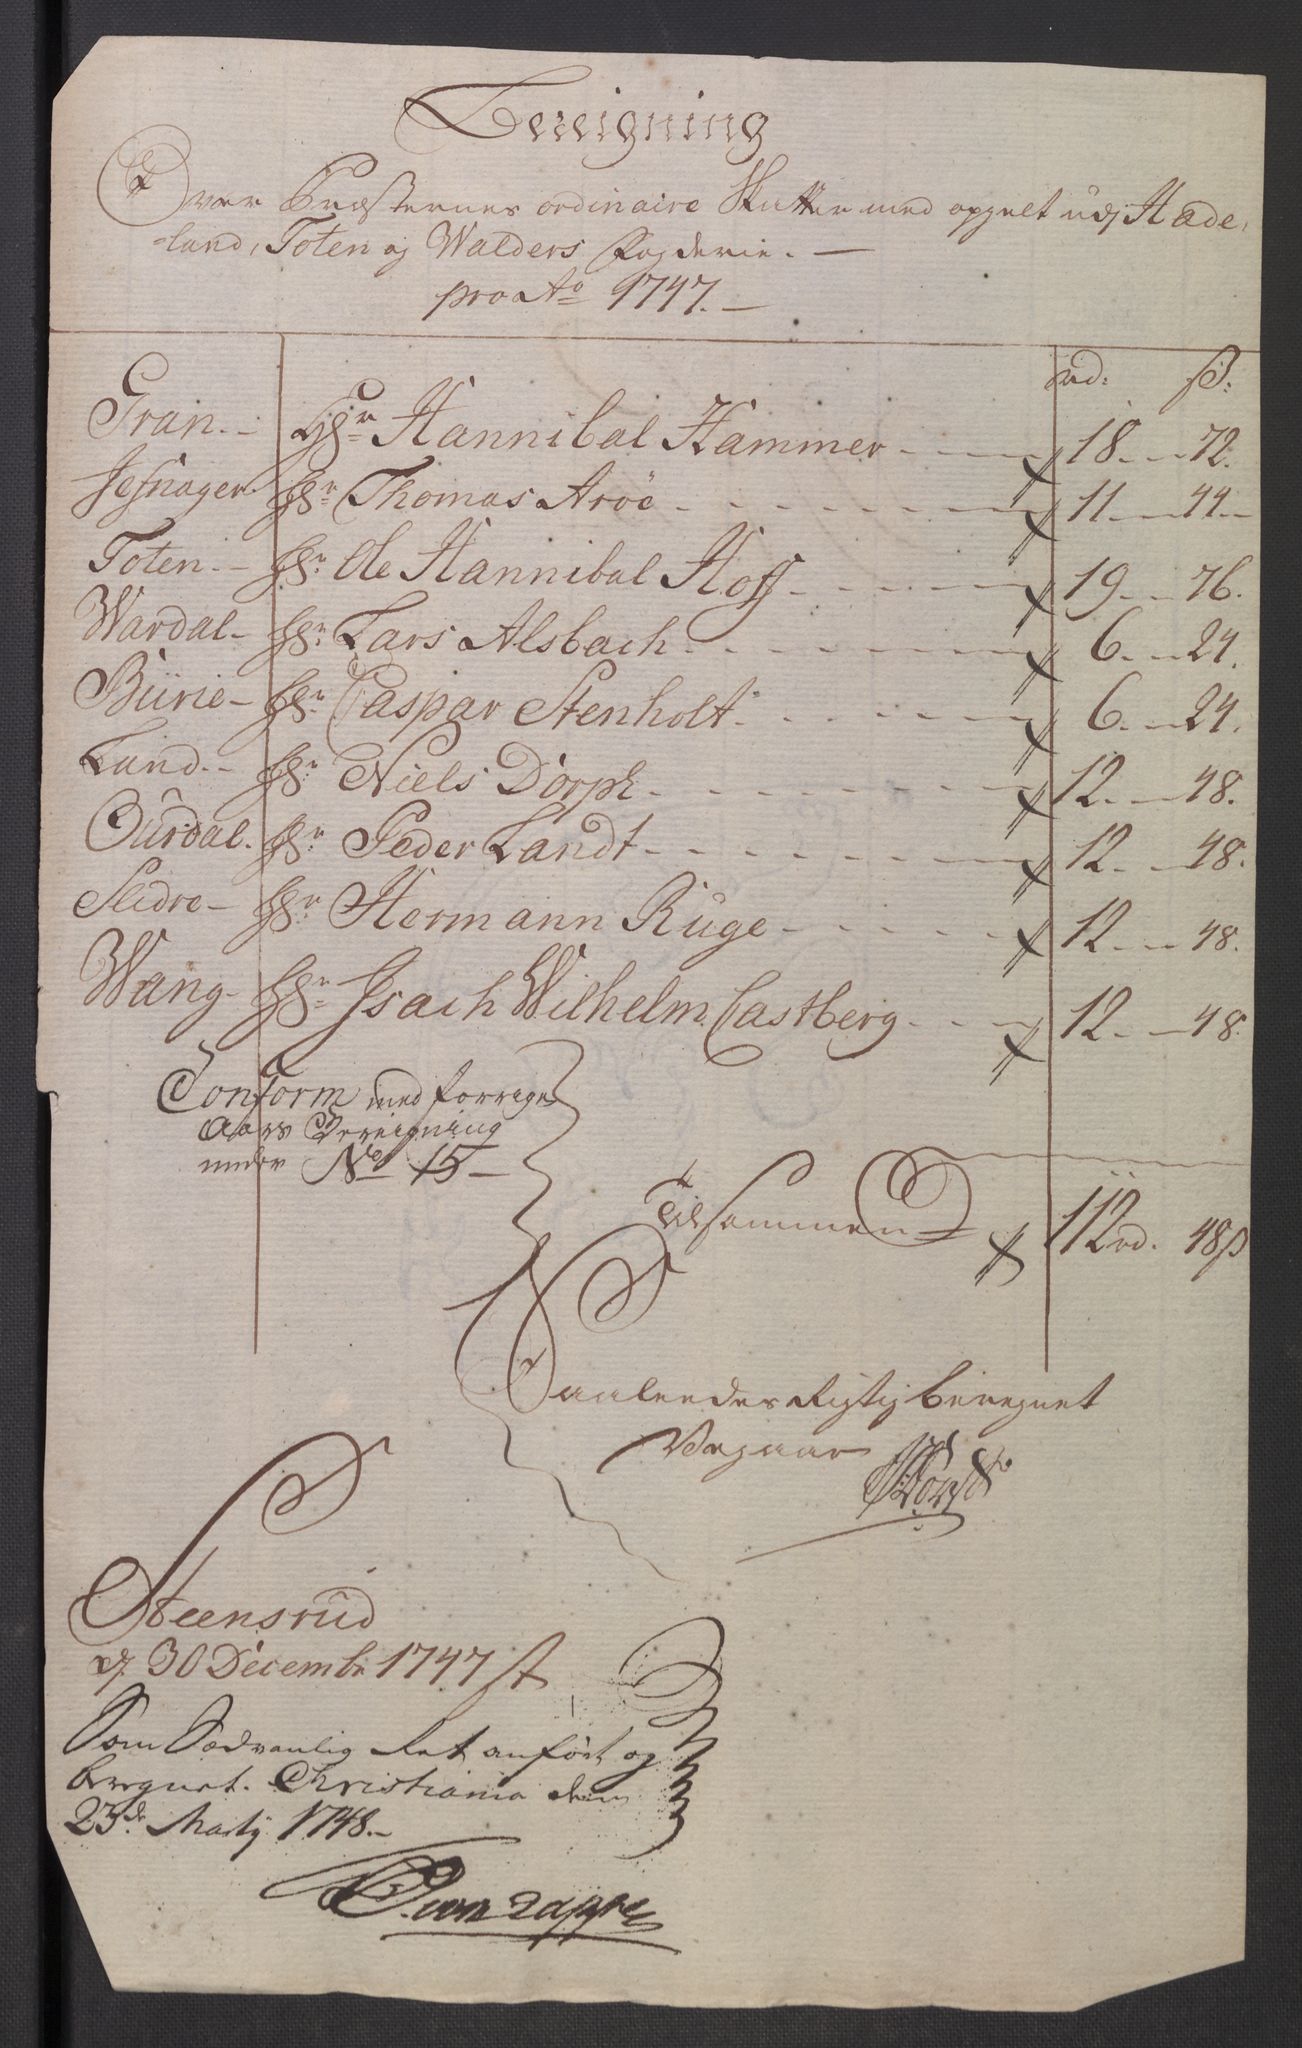 Bereigning
Over Præsternes ordinaire Skatter med opgelt udj Hade-
land, Toten og Walders Fogderie.
pro Ao 1747.
rd: ß:
Gran. Hr Hannibal Hammer 18 72.
Jefnager. Hr Thomas Aröe 11 44
Toten. Hr Ole Hannibal Hoff 19 76.
Wardal Hr Lars Alsbach 6 24.
Biirie Hr Caspar Stenholt 6 24.
Land. Hr Niels Dorph 12 48.
Ourdal. Hr Peder Landt 12 48.
Slidre Hr Hermann Ruge 12 48.
Wang Hr Isach Wilhelm Castberg 12 48.
Conform med forrige
Aars Bereigning
under No 15
Tilsammen 112 rd. 48 ß
Saaledes Rigtig beregnet
Steensrud
d 30 Decembr 1747
Som Sædvanlig Ret anført og
beregnet. Christiania den
23de Martij 1748.